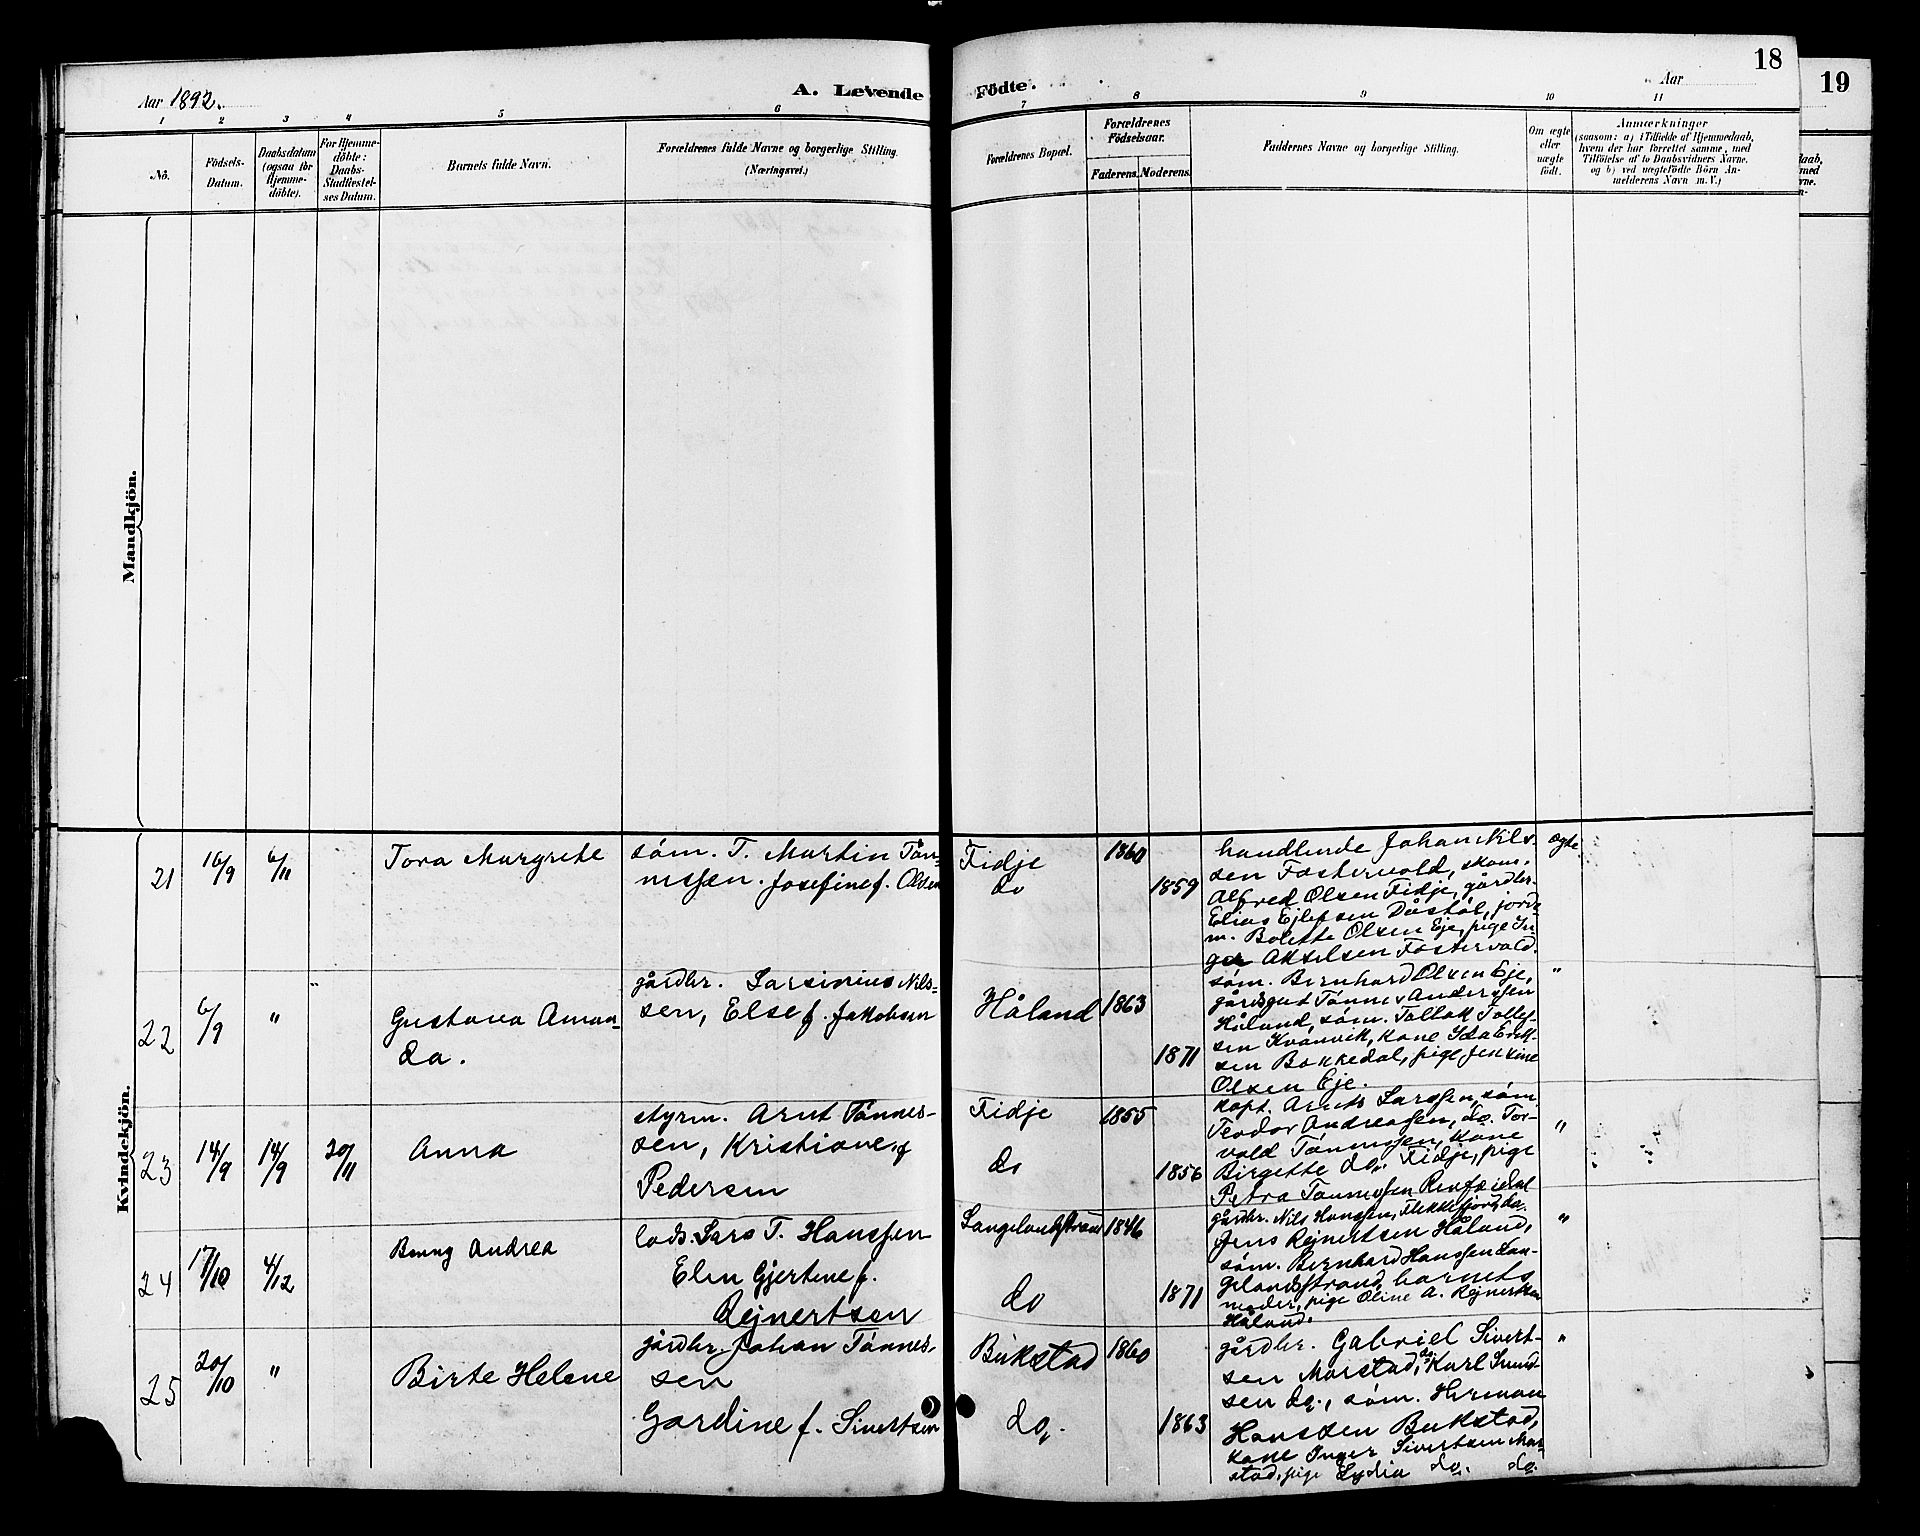 18
19
Aar 1892.
A. Levende
Födte.
Aar
1
2
3
4
5
6
7
8
9
10
11
No.
Födsels-
Datum.
Daabsdatum
(ogsaa for
Hjemme-
döbte).
For Hjemme-
döbte:
Daabs-
Stadfæstel-
ses Datum.
Barnets fulde Navn.
Forældrenes fulde Navne og borgerlige Stilling.
(Næringsvei.)
Forældrenes Bopæl.
Forældrenes
Födselsaar.
Faderens.
Moderens.
Faddernes Navne og borgerlige Stilling.
Om ægte
eller
uægte
födt.
Anmærkninger
(saasom: a) i Tilfælde af Hjemmedaab,
hvem der har forrettet samme, med
Tilföielse af to Daabsvidners Navne.
og b) ved uægtefödte Börn An-
melderens Navn m. V.)
Mandkjön.
Kvindekjön.
21
16/9
6/11
Tora Margrete
söm. T. Martin Tön-
nessen. Josefine f. Olsen
Fidje
do
1860
1859
handlende Johan Nils-
sen Fostervold, skom.
Alfred Olsen Fidje, gårdbr.
Elias Ejlefsen Dåstöl, jorde-
m. Bolette Olsen Eje, pige In-
ger Akselsen Fostervold.
ægte
22
6/9
"
"
Gustava Aman-
da.
gårdbr. Larsinius Nils-
sen, Else f. Jakobsen
Håland
1863
1871
söm. Bernhard Olsen Eje,
gårdsgut Tönnes Anderssen
Håland, söm. Tallak Tollef-
sen Kvanvik, kone Ida Erik-
sen Bakkedal, pige Jensine
Olsen Eje.
"
23
14/9
14/9
20/11
Anna
styrm. Arnt Tönnes-
sen, Kristiane f
Pedersen
Fidje
do
1855
1856
kapt. Arnts Larssen, söm
Teodor Andreassen, do. Tor-
vald Tönnessen, kone
Birgette do. Fidje, pige
Petra Tönnessen
"
24
17/10
4/12
Andrea
lods Lars T. Hanssen
Elen Gjertine f.
Rejnertsen
Langelandsstrand
do
1846
1871
gårdbr. Nils Hansen, Flekkefjord, do.
Jens Rejnertsen Håland,
söm. Bernhard Hanssen Lan-
gelandsstrand, barnets
moder, pige Oline A. Rejnertsen
Håland.
"
25
20/10
"
Birte Helene
gårdbr. Johan Tönnes-
sen
Gardine f. Sivertsen
Bukstad
do.
1860
1863
gårdbr. Gabriel Sivert-
sen Marstad, do. Karl Sivert-
sen do., söm. Herman
Hanssen Bukstad,
kone Inger Sivertsen Mar-
stad, pige Lydia do. do.
"